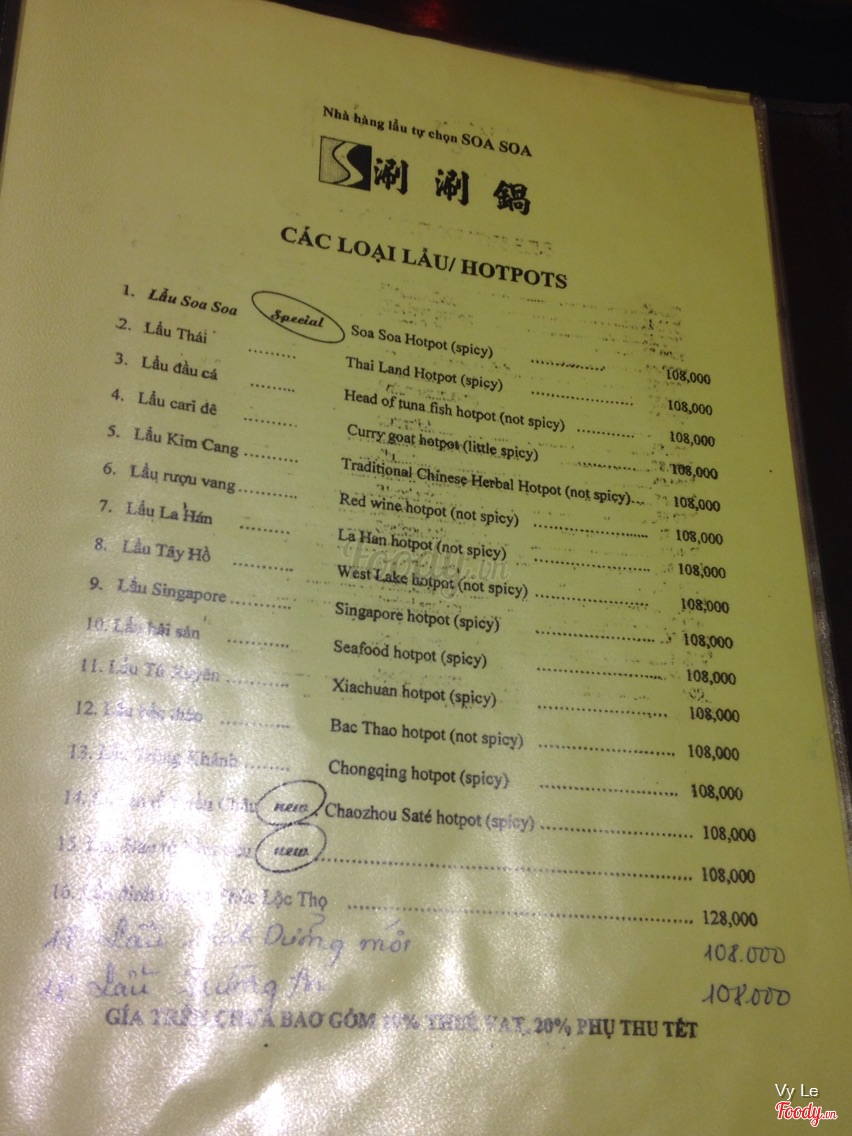 Nhà hàng lẩu tự chọn SOA SOA
涮涮鍋
CÁC LOẠI LẨU/ HOTPOTS
1. Lẩu Soa Soa Special Soa Soa Hotpot (spicy) .................. 108,000
2. Lẩu Thái ......... Thai Land Hotpot (spicy) .................. 108,000
3. Lẩu đầu cá ......... Head of tuna fish hotpot (not spicy) .................. 108,000
4. Lẩu cari dê ......... Curry goat hotpot (little spicy) .................. 108,000
5. Lẩu Kim Cang .......... Traditional Chinese Herbal Hotpot (not spicy)... 108,000
6. Lẩu rượu vang .......... Red wine hotpot (not spicy) .................. 108,000
7. Lẩu La Hán ......... La Han hotpot (not spicy) .................. 108,000
8. Lẩu Tây Hồ .......... West Lake hotpot (not spicy) .................. 108,000
9. Lẩu Singapore .......... Singapore hotpot (spicy) .................. 108,000
10. Lẩu hải sản .......... Seafood hotpot (spicy) .................. 108,000
11. Lẩu Tứ Xuyên .......... Xiachuan hotpot (spicy) .................. 108,000
12. Lẩu bắc thảo .......... Bac Thao hotpot (not spicy) .................. 108,000
13. Lẩu Trùng Khánh ....... Chongqing hotpot (spicy) .................. 108,000
14. Châu new Chaozhou Saté hotpot (spicy) .................. 108,000
15. new .................. 108,000
16. Lộc Thọ .................. 128,000
Lẩu Dưỡng mới 108.000
18 Lẩu Trường An 108.000
GÍA TRÊN CHƯA BAO GỒM 10% THUẾ VAT, 20% PHỤ THU TẾT
Foody.vn
Vy Le
Foody.vn